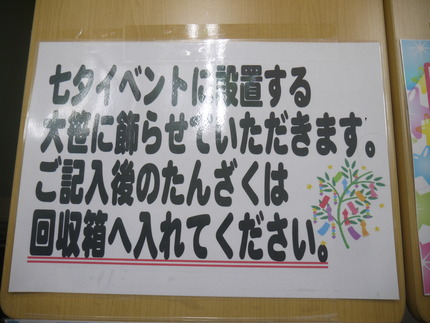 七夕イベントに設置する
大笹に飾らせていただきます。
ご記入後のたんざくは
回収箱へ入れてください。